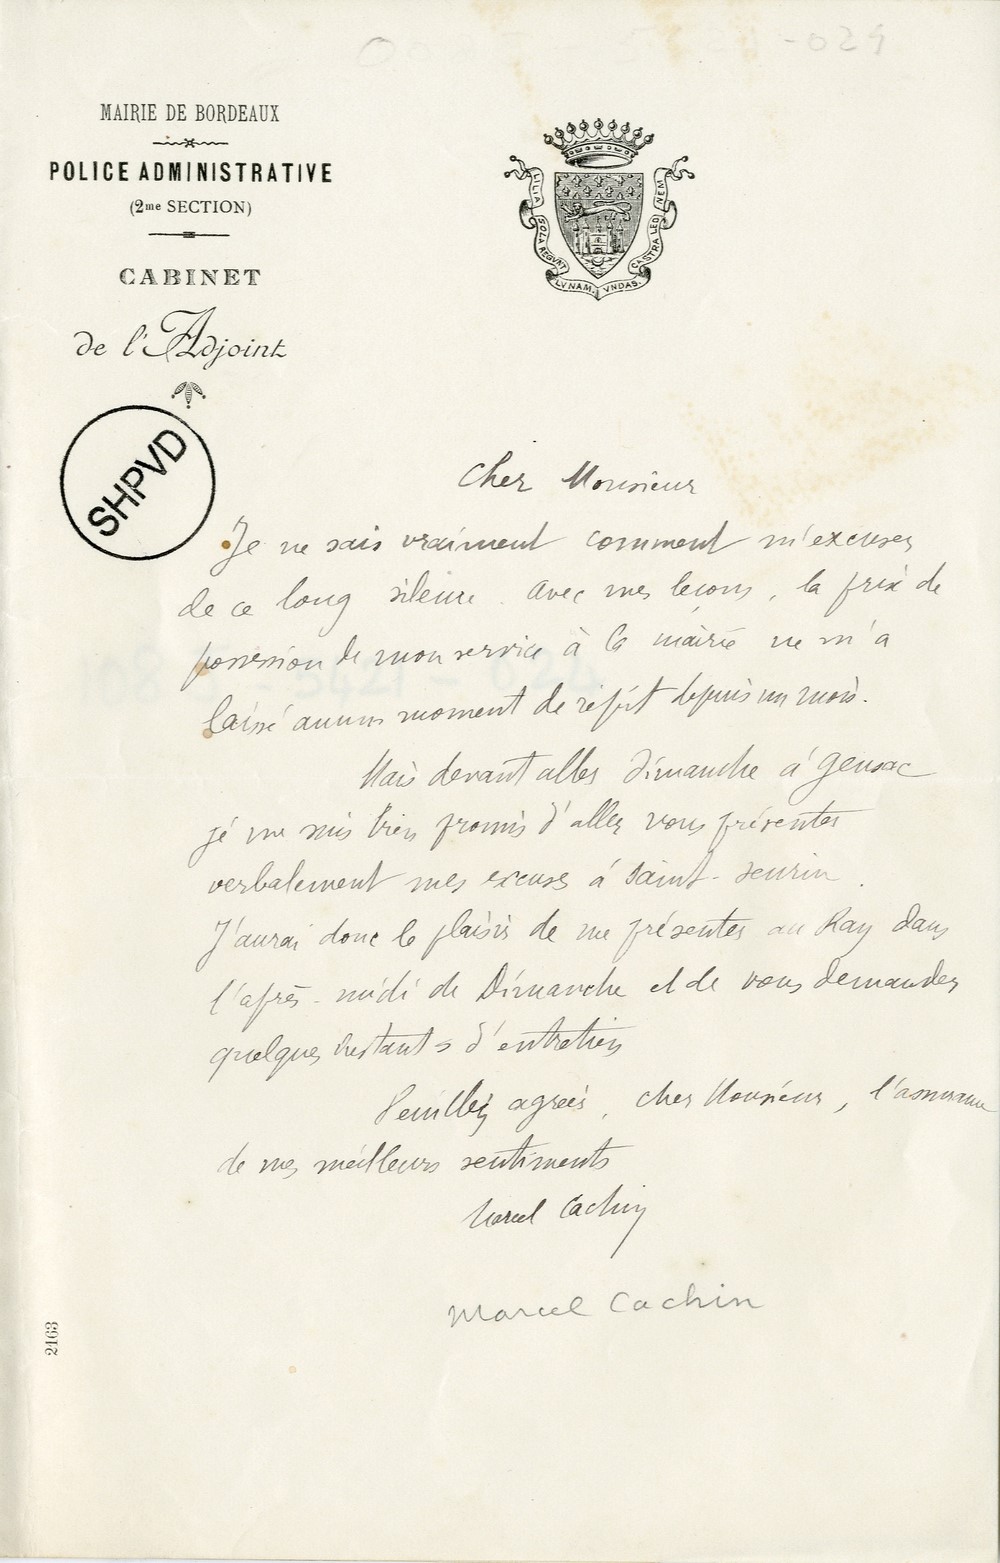 MAIRIE DE BORDEAUX
POLICE ADMINISTRATIVE
(2me SECTION)
CABINET
de l'Adjoint
LILIA SOLA REGUNT LVNAM. VNDAS. CASTRA LEO NEM
SHPVD
Cher Monsieur
Je ne sais vraiment comment m'excuser
de ce long silence. Avec mes leçons, la prise de
possession de mon service à la mairie ne m'a
laissé aucun moment de répit depuis un mois.
Mais devant aller Dimanche à Gensac
je me suis bien promis d'aller vous présenter
verbalement mes excuses à Saint-Seurin.
J'aurai donc le plaisir de me présenter au Ray dans
l'après-midi de Dimanche et de vous demander
quelques instants d'entretien
Veuillez agréer, cher Monsieur, l'assurance
de mes meilleurs sentiments
Marcel Cachin
Marcel Cachin
2163